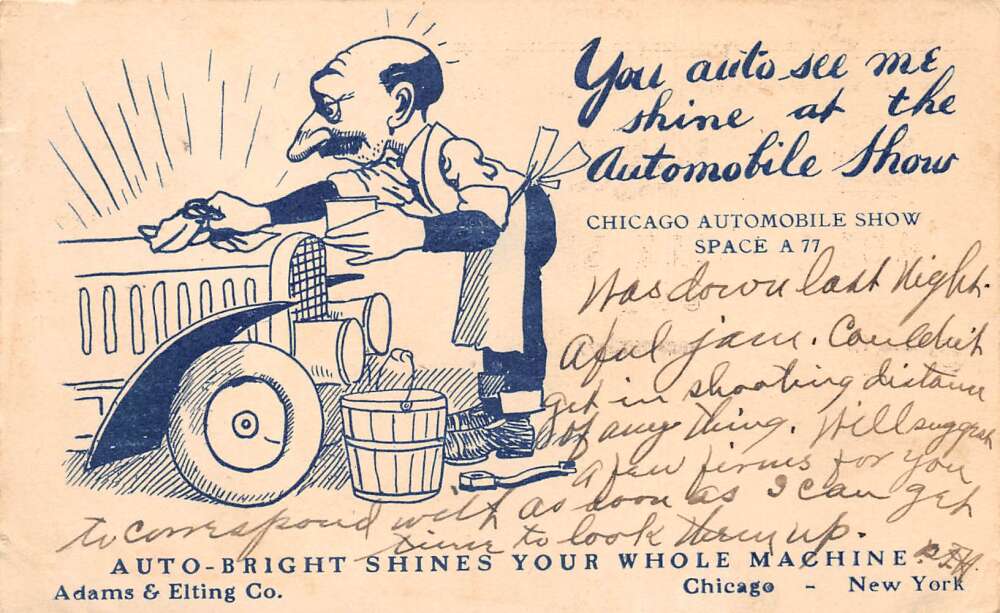 You auto see me
shine at the
Automobile Show
CHICAGO AUTOMOBILE SHOW
SPACE A 77
Was down last night.
Aful jam. Couldn't
get in shooting distance
of any thing. Will suggest
a few firms for you
to correspond with as soon as I can get
time to look them up.
AUTO-BRIGHT SHINES YOUR WHOLE MACHINE
Adams & Elting Co.
Chicago - New York